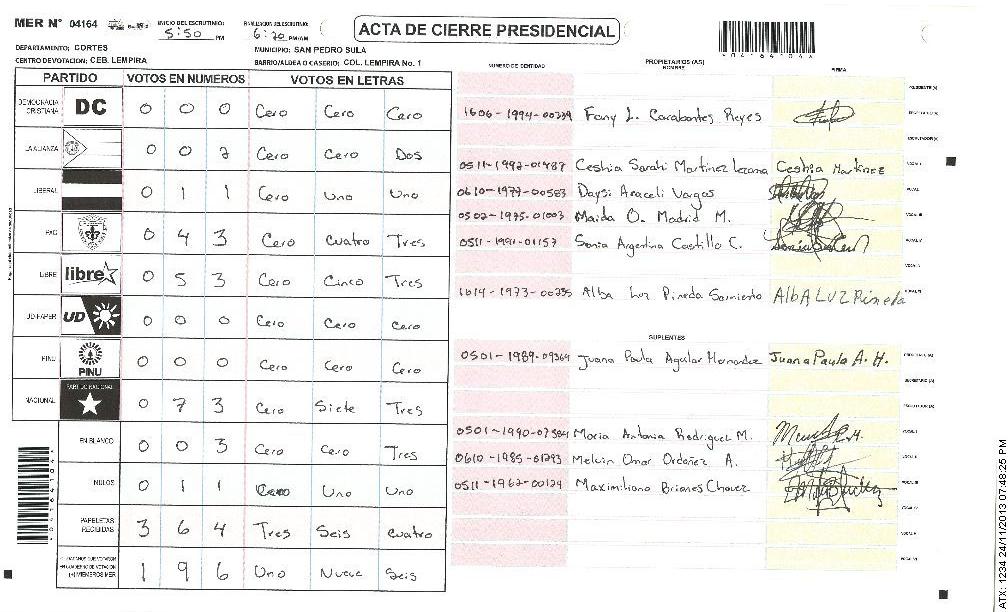 MER Nº 04164
INICIO DEL ESCRUTINIO: 5:50 PM
FINALIZACION DEL ESCRUTINIO: 6:20 PM/AM
ACTA DE CIERRE PRESIDENCIAL
DEPARTAMENTO: CORTES
MUNICIPIO: SAN PEDRO SULA
CENTRO DE VOTACION: CEB. LEMPIRA
BARRIO/ALDEA O CASERIO: COL. LEMPIRA No. 1
PARTIDO VOTOS EN NUMEROS VOTOS EN LETRAS
DEMOCRACIA CRISTIANA DC 0 0 0 Cero Cero Cero
LA ALIANZA 0 0 2 Cero Cero Dos
LIBERAL 0 1 1 Cero Uno Uno
PAC 0 4 3 Cero Cuatro Tres
LIBRE libre 0 5 3 Cero Cinco Tres
UD FAPER UD 0 0 0 Cero Cero Cero
PINU PINU 0 0 0 Cero Cero Cero
NACIONAL PARTIDO NACIONAL 0 7 3 Cero Siete Tres
EN BLANCO 0 0 3 Cero Cero Tres
NULOS 0 1 1 Cero Uno Uno
PAPELETAS RECIBIDAS 3 6 4 Tres Seis Cuatro
(+) MIEMBROS MER 1 9 6 Uno Nueve Seis
NUMERO DE IDENTIDAD PROPIETARIOS (AS) NOMBRE FIRMA
PRESIDENTE (A)
1606-1994-00339 Fany L. Carabantes Reyes SECRETARIO (A)
ESCRUTADOR (A)
0511-1992-01487 Ceshia Sarahi Martinez Lezama Ceshia Martinez VOCAL I
0610-1977-00583 Daysi Araceli Vargas VOCAL II
0502-1975-01003 Maida O. Madrid M. VOCAL III
0511-1991-01157 Sonia Argentina Castillo C. VOCAL IV
VOCAL V
1614-1973-00235 Alba Luz Pineda Sarmiento AlbA LUZ Pineda VOCAL VI
SUPLENTES
0501-1989-09364 Juana Paula Aguilar Hernandez Juana Paula A. H. PRESIDENTE (A)
SECRETARIO (A)
ESCRUTADOR (A)
0501-1990-07384 Maria Antonia Rodriguez M. VOCAL I
0610-1985-01293 Melvin Omar Ordoñez A. VOCAL II
0511-1962-00124 Maximiliano Briones Chavez VOCAL III
VOCAL IV
VOCAL V
VOCAL VI
ATX: 1234 24/11/2013 07:48:25 PM